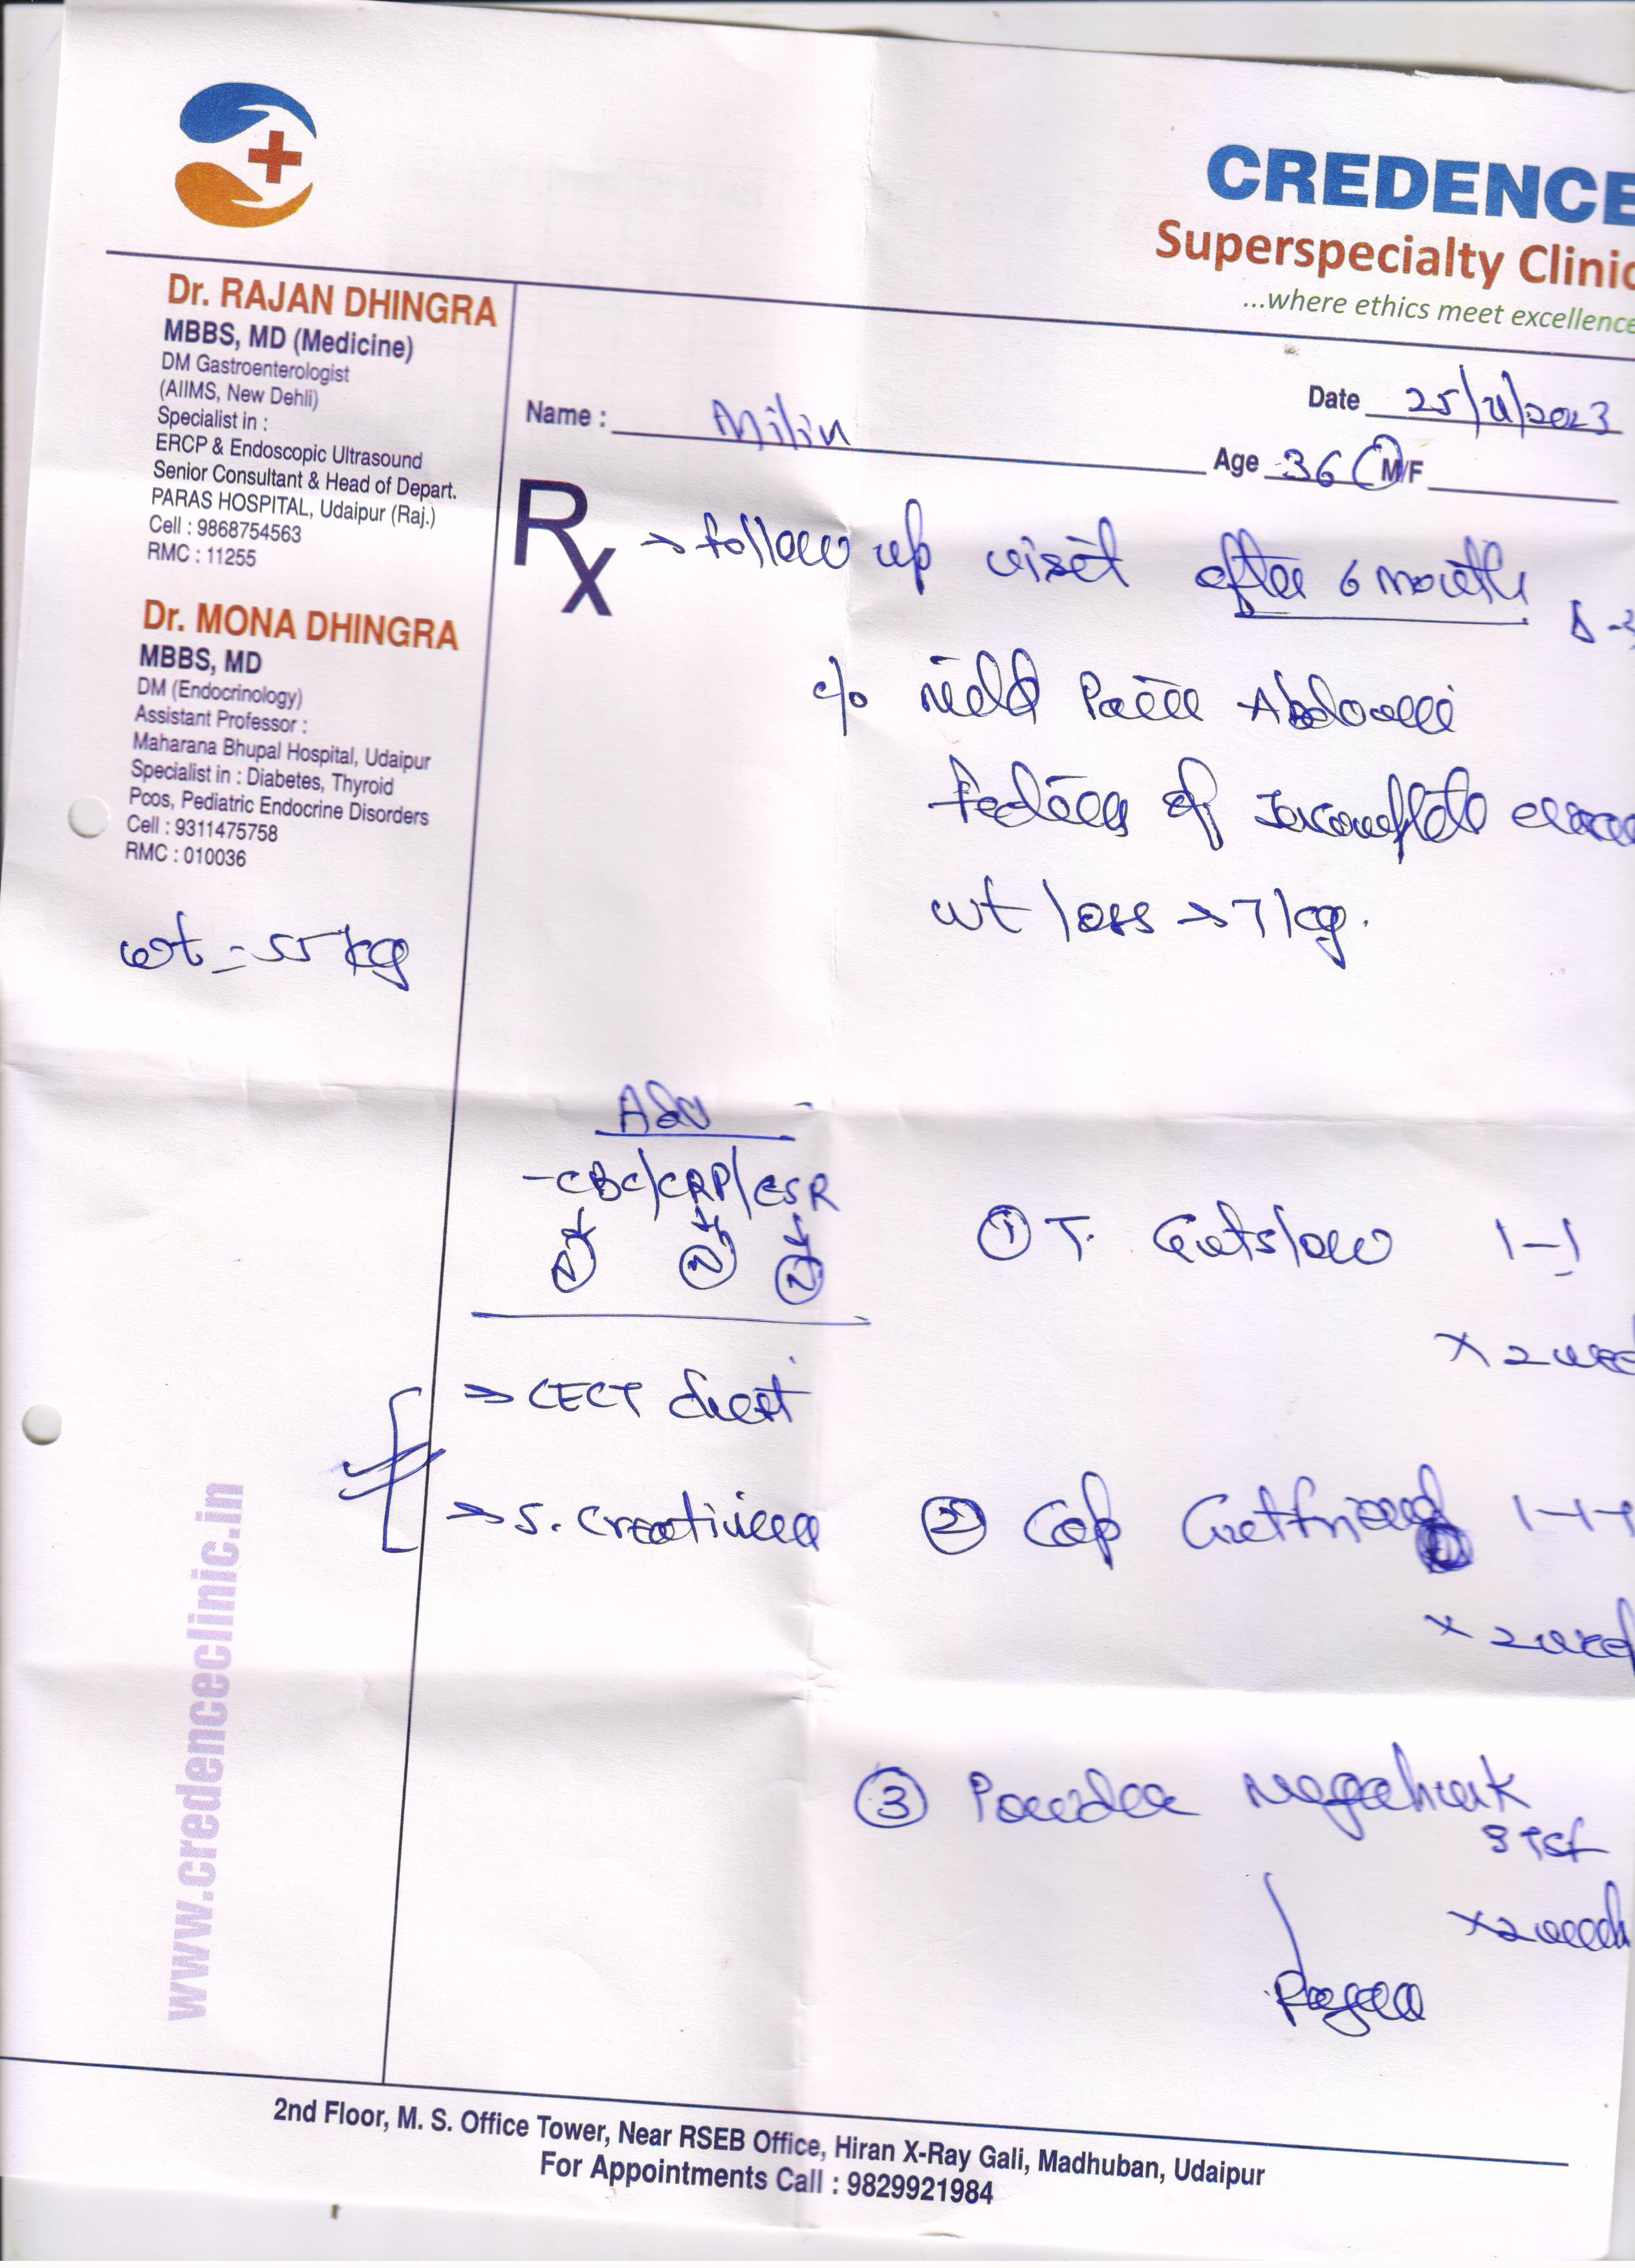 CREDENCE
Superspecialty Clinic
...where ethics meet excellence
Dr. RAJAN DHINGRA
MBBS, MD (Medicine)
DM Gastroenterologist
(AIIMS, New Dehli)
Specialist in :
ERCP & Endoscopic Ultrasound
Senior Consultant & Head of Depart.
PARAS HOSPITAL, Udaipur (Raj.)
Cell : 9868754563
RMC : 11255
Dr. MONA DHINGRA
MBBS, MD
DM (Endocrinology)
Assistant Professor :
Maharana Bhupal Hospital, Udaipur
Specialist in : Diabetes, Thyroid
Pcos, Pediatric Endocrine Disorders
Cell : 9311475758
RMC : 010036
wt = 55 kg
Date 25/11/2023
Name :
Age 36 M/F
Rx → follow up visit after 6 months
c/o mild Pain Abdomen
feeling of Incomplete
wt loss → 7 kg.
Adv
- CBC/CRP/ESR
N N N
→ CECT chest
→ S. Creatinine
① T. Gutslow 1-1
x 2 wee
② Cap 1-1-1
x 2 week
③ Powder
3 TSF
x 2 week
www.credenceclinic.in
2nd Floor, M. S. Office Tower, Near RSEB Office, Hiran X-Ray Gali, Madhuban, Udaipur
For Appointments Call : 9829921984